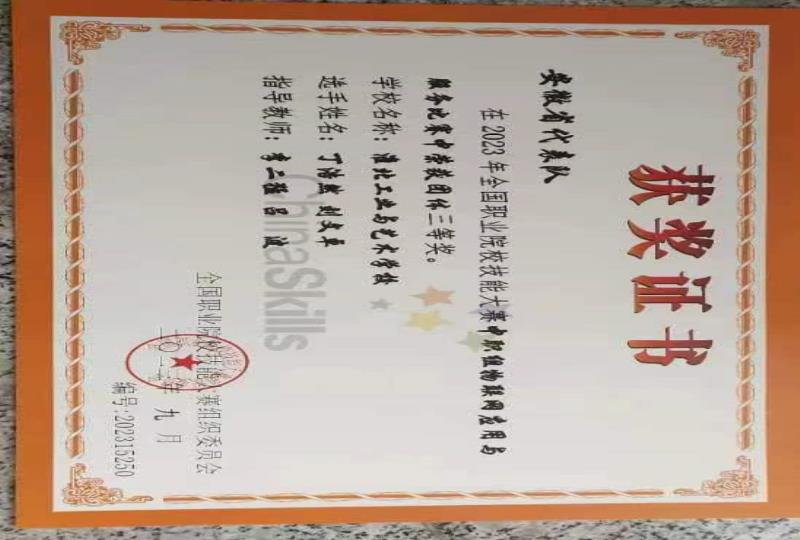 获奖证书
安徽省代表队
在2023年全国职业院校技能大赛中职组物联网应用与
服务比赛中荣获团体三等奖。
学校名称：淮北工业与艺术学校
选手姓名：丁浩然 刘文卓
指导教师：李二强 吕 波
ChinaSkills
全国职业院校技能大赛组织委员会
二〇二三年九月
编号:202315250